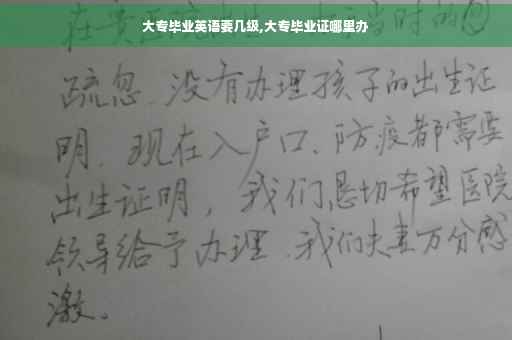 大专毕业英语要几级,大专毕业证哪里办
疏忽、没有办理孩子的出生证
明、现在入户口、防疫都需要
出生证明，我们恳切希望医院
领导给予办理、我们夫妻万分感
激。